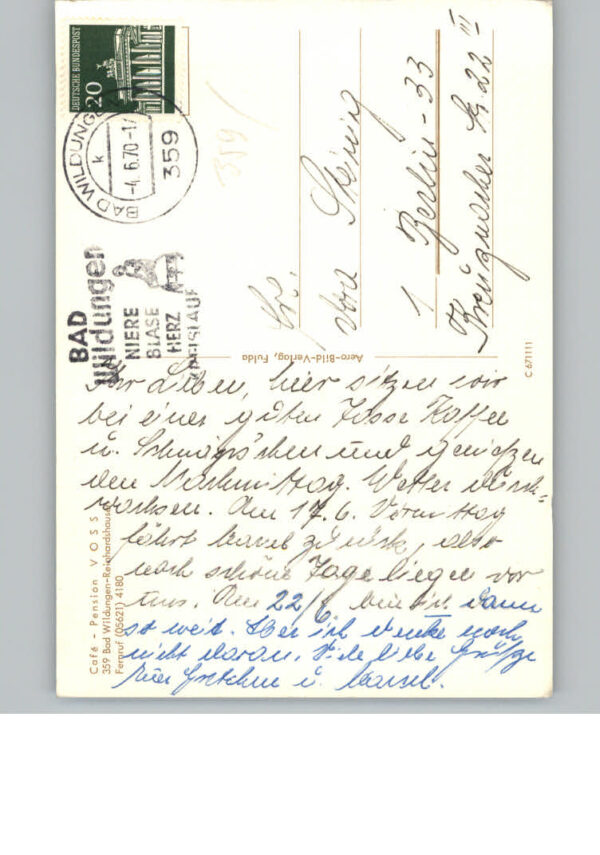 DEUTSCHE BUNDESPOST
20
BAD WILDUNGEN
k
-4.6.70-17
359
BAD
Wildungen
NIERE
BLASE
HERZ
KREISLAUF
359/
Fr.
Steinig
1 Berlin-33
Kreuznacher Str. 22 III
Aero-Bild-Verlag, Fulda
C 671111
Café - Pension VOSS
359 Bad Wildungen-Reinhardshausen
Fernruf (05621) 4180
Ihr Lieben, hier sitzen wir
bei einer guten Tasse Kaffee
u. Schnäps'chen und geniessen
den Nachmittag. Wetter durch=
wachsen. Am 17.6. Vormittag
fährt zurück, also
noch schöne Tage liegen vor
uns. Am 22/6 bin ich dann
so weit. Aber ich denke noch
nicht daran. Viele liebe Grüsse
Euer Gretchen u.